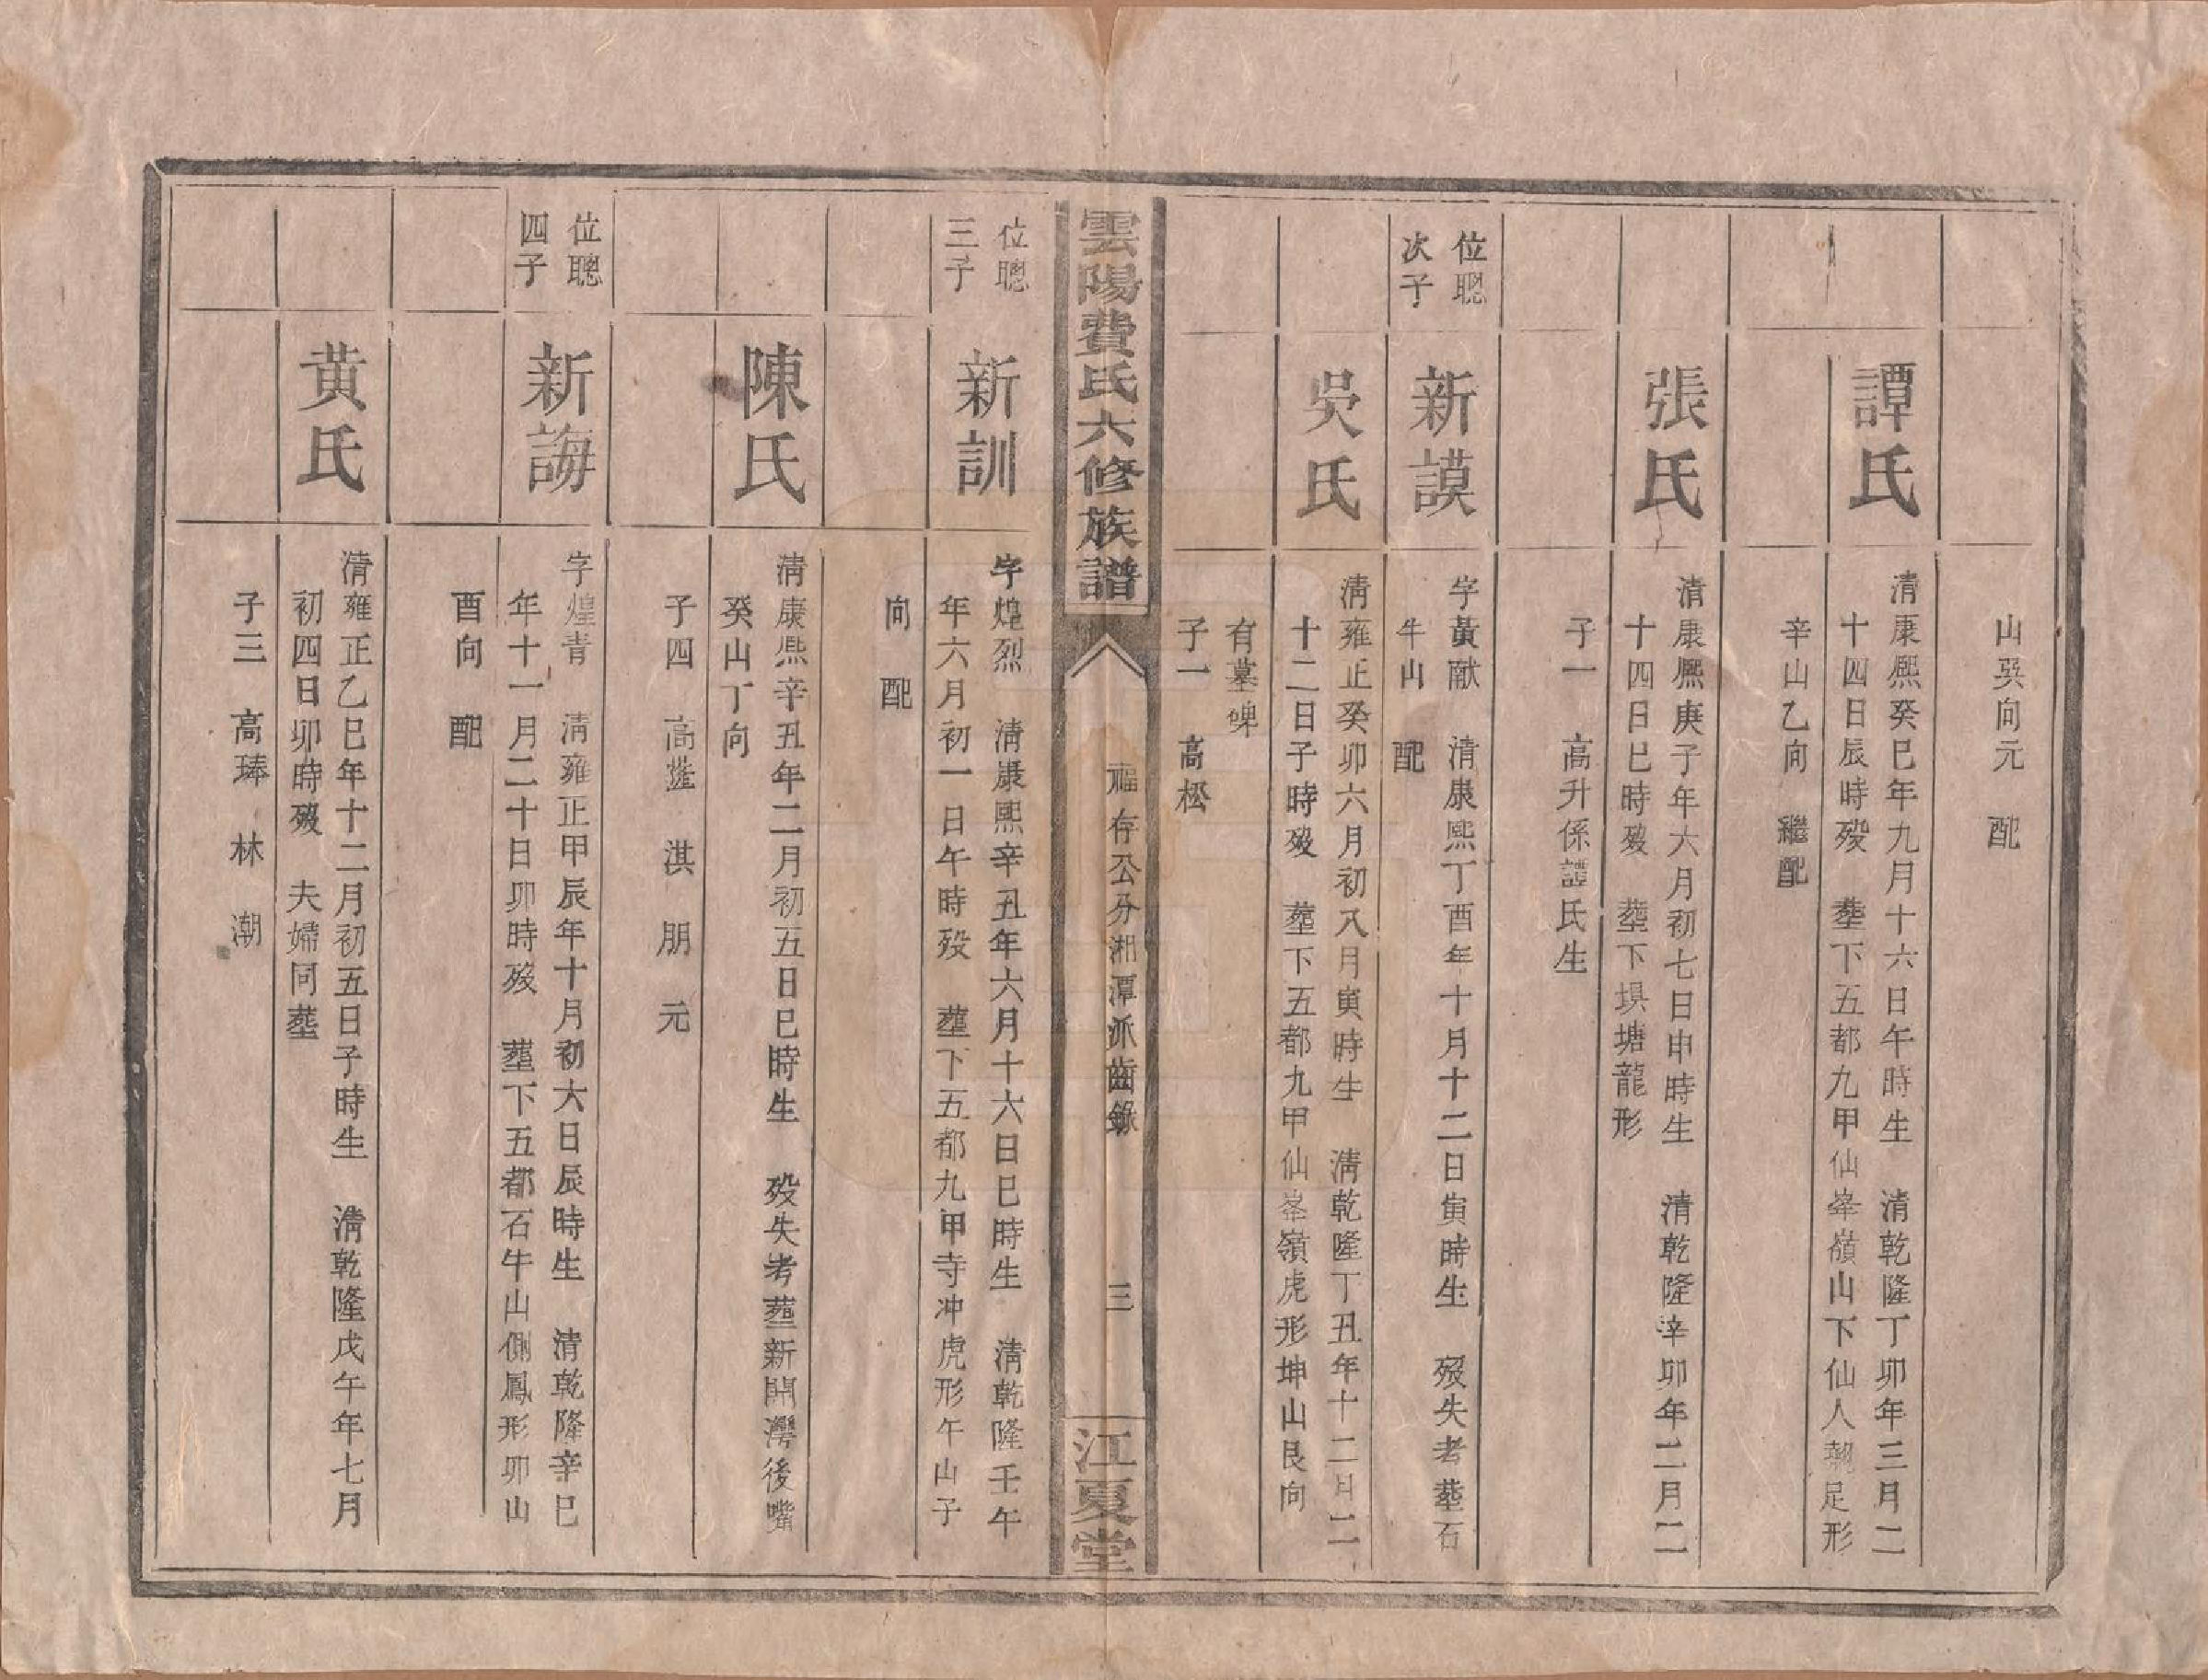 山癸向元　配
譚氏
清康熙癸巳年九月十六日午時生　清乾隆丁卯年三月二
十四日辰時歿　塟下五都九甲仙峯嶺山下仙人翹足形
辛山乙向　繼配
張氏
清康熙庚子年六月初七日申時生　清乾隆辛卯年二月二
十四日巳時歿　塟下垻塘龍形
子一　高升係譚氏生
位聰
次子
新謨
字黃献　清康熙丁酉年十月十二日寅時生　歿失考塟石
牛山　配
吳氏
清雍正癸卯六月初八月寅時生　清乾隆丁丑年十二月二
十二日子時歿　塟下五都九甲仙峯嶺虎形坤山艮向
有墓碑
子一　高松
雲陽費氏六修族譜
福存公分湘潭派齒錄
三
江夏堂
位聰
三子
新訓
字煌烈　清康熙辛丑年六月十六日巳時生　清乾隆壬午
年六月初一日午時歿　塟下五都九甲寺冲虎形午山子
向　配
陳氏
清康熙辛丑年二月初五日巳時生　歿失考塟新開灣後嘴
癸山丁向
子四　高蓬　淇　朋　元
位聰
四子
新誨
字煌青　清雍正甲辰年十月初六日辰時生　清乾隆辛巳
年十一月二十日卯時歿　塟下五都石牛山側鳳形卯山
酉向　配
黄氏
清雍正乙巳年十二月初五日子時生　清乾隆戊午年七月
初四日卯時歿　夫婦同塟
子三　高琫　林　潮